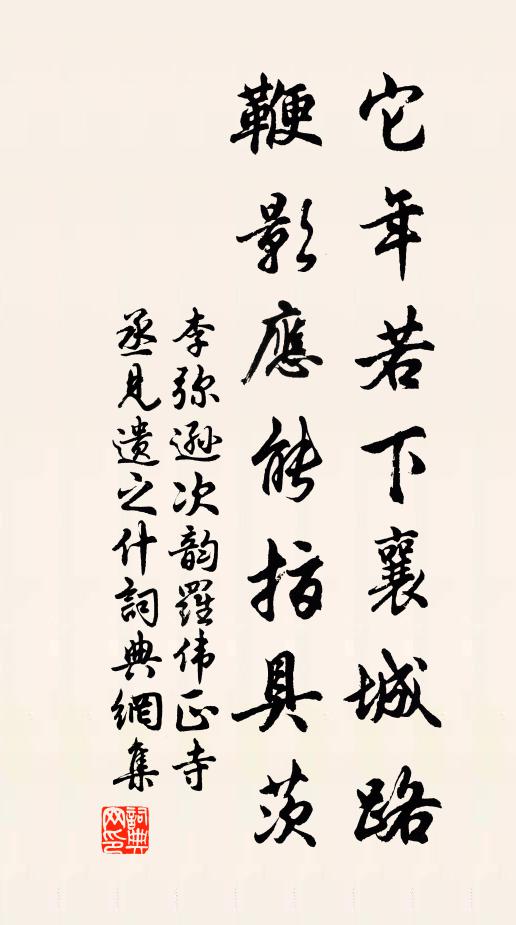 它年若下襄城路
鞭影應能指具茨
李弥遜次韵羅伟正寺
丞見遺之什詞典網集
詞典网印